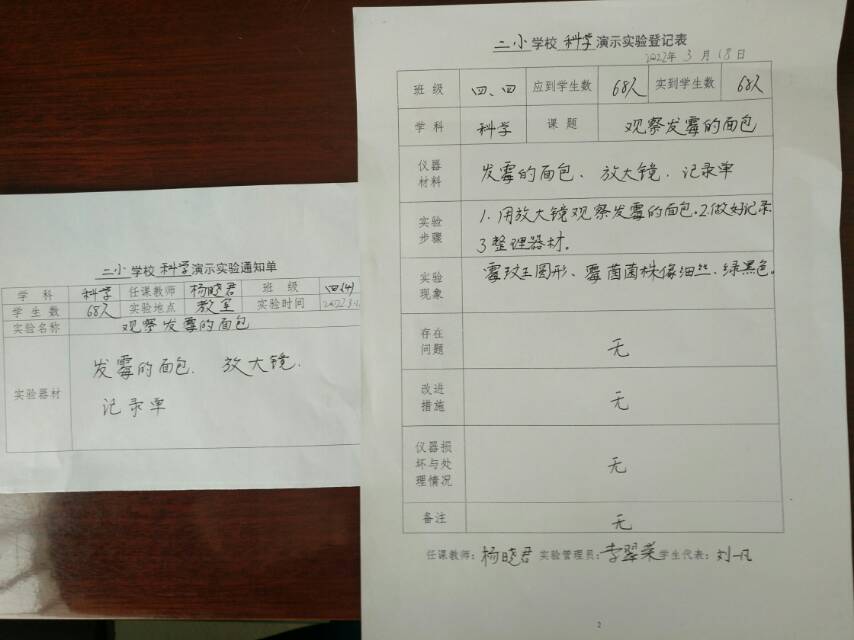 二小学校 科学演示实验通知单
学 科 科学 任课教师 杨晓君 班 级 四(4)
学 生 数 68人 实验地点 教室 实验时间
实验名称 观察发霉的面包
实验器材 发霉的面包、放大镜、
记录单
二小学校 科学演示实验登记表
2022年 3 月 18 日
班 级 四、四 应到学生数 68人 实到学生数 68人
学 科 科学 课 题 观察发霉的面包
仪器
材料
发霉的面包、放大镜、记录单
实验
步骤
1.用放大镜观察发霉的面包.2.做好记录
3整理器材.
实验
现象
霉 圆形、霉菌菌株像细丝、绿黑色。
存在
问题
无
改进
措施
无
仪器损
坏与处
理情况
无
备注 无
任课教师：杨晓君 实验管理员：李翠荣 学生代表：刘一凡
2